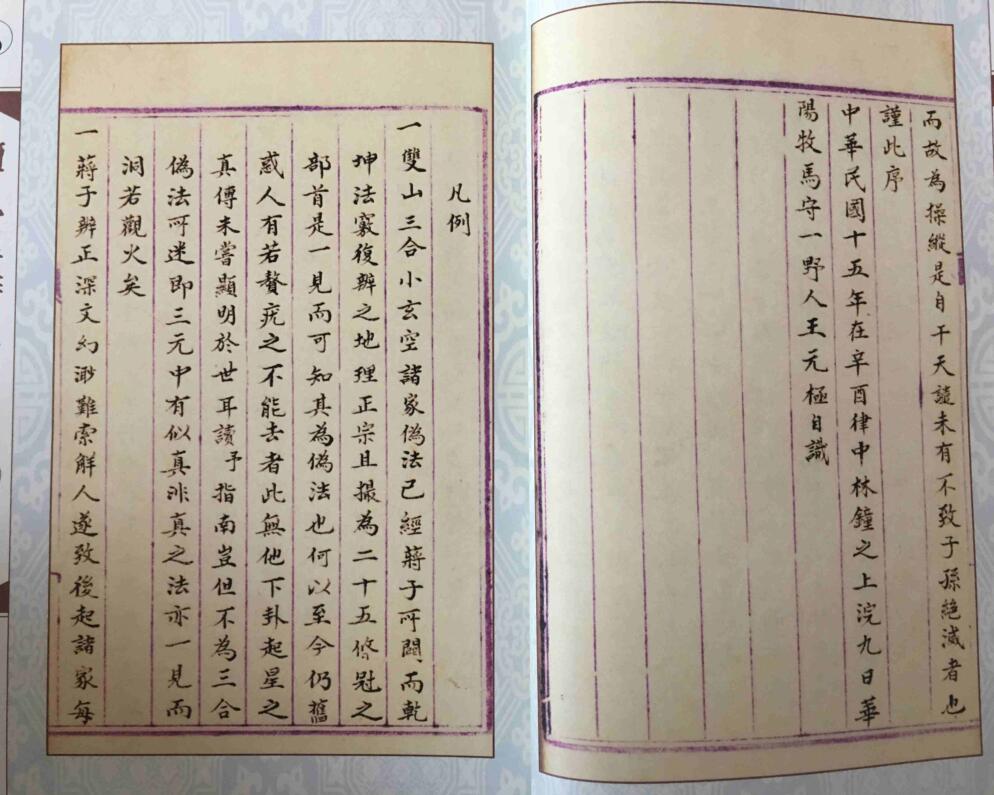 而故為操縱是自干天譴未有不致子孫絕滅者也
謹此序
中華民國十五年在辛酉律中林鐘之上浣九日華
陽牧馬守一野人王元極自識
凡例
一雙山三合小玄空諸家偽法已經蔣子所闢而乾
坤法竅復辨之地理正宗且撮為二十五條冠之
部首是一見而可知其為偽法也何以至今仍舊
惑人有若贅疣之不能去者此無他下卦起星之
真傳未嘗顯明於世耳讀予指南豈但不為三合
偽法所迷即三元中有似真非真之法亦一見而
洞若觀火矣
一蔣子辨正深文幻渺難索解人遂致後起諸家每